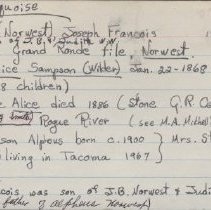 quoise
Norwest, Joseph Francois
of J.B. & Judith W.N.
Grand Ronde file, Norwest.
ice Sampson (Wilder) Jan. 22-1868
8 children)
e Alice died 1886 (Stone G.R. Ce
Smith) Rogue River (see M.A. Mitchell
son Alphous born c. 1900 } Mrs. S
living in Tacoma 1967 }
cois was son of J.B. Norwest & Judi
father of alpheus Norwest)